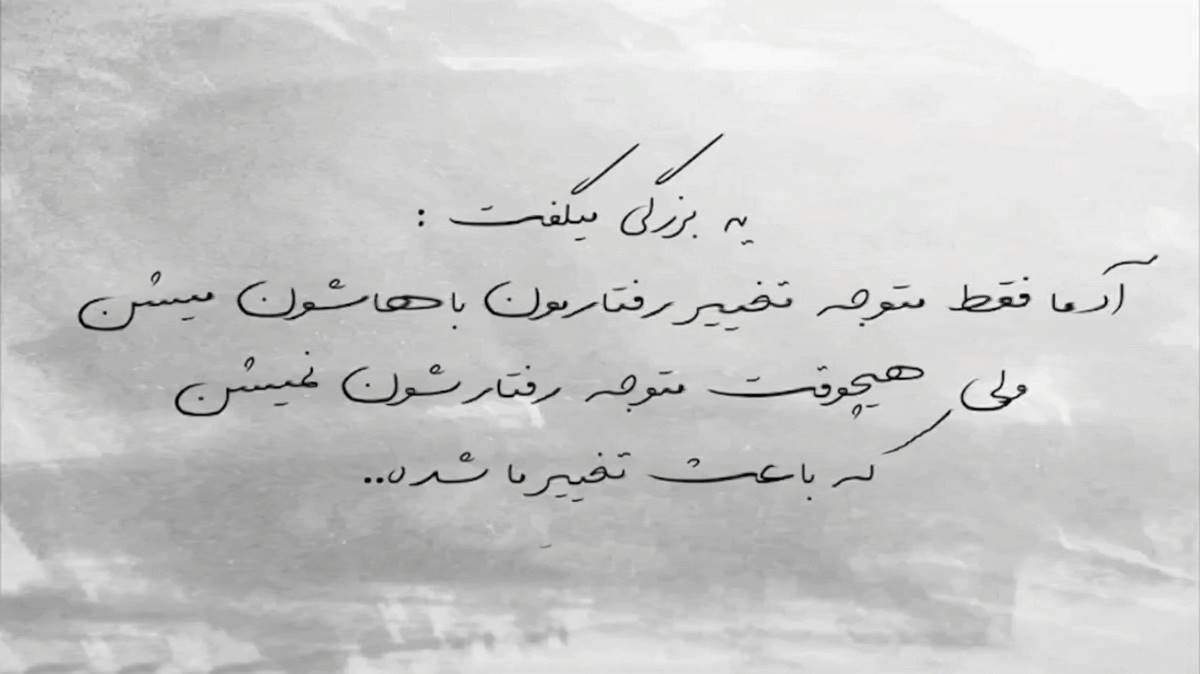 یه بزرگی میگفت :
آدما فقط متوجه تغییر رفتارمون باهاشون میشن
ولی هیچوقت متوجه رفتارشون نمیشن
که باعث تغییر ما شده..